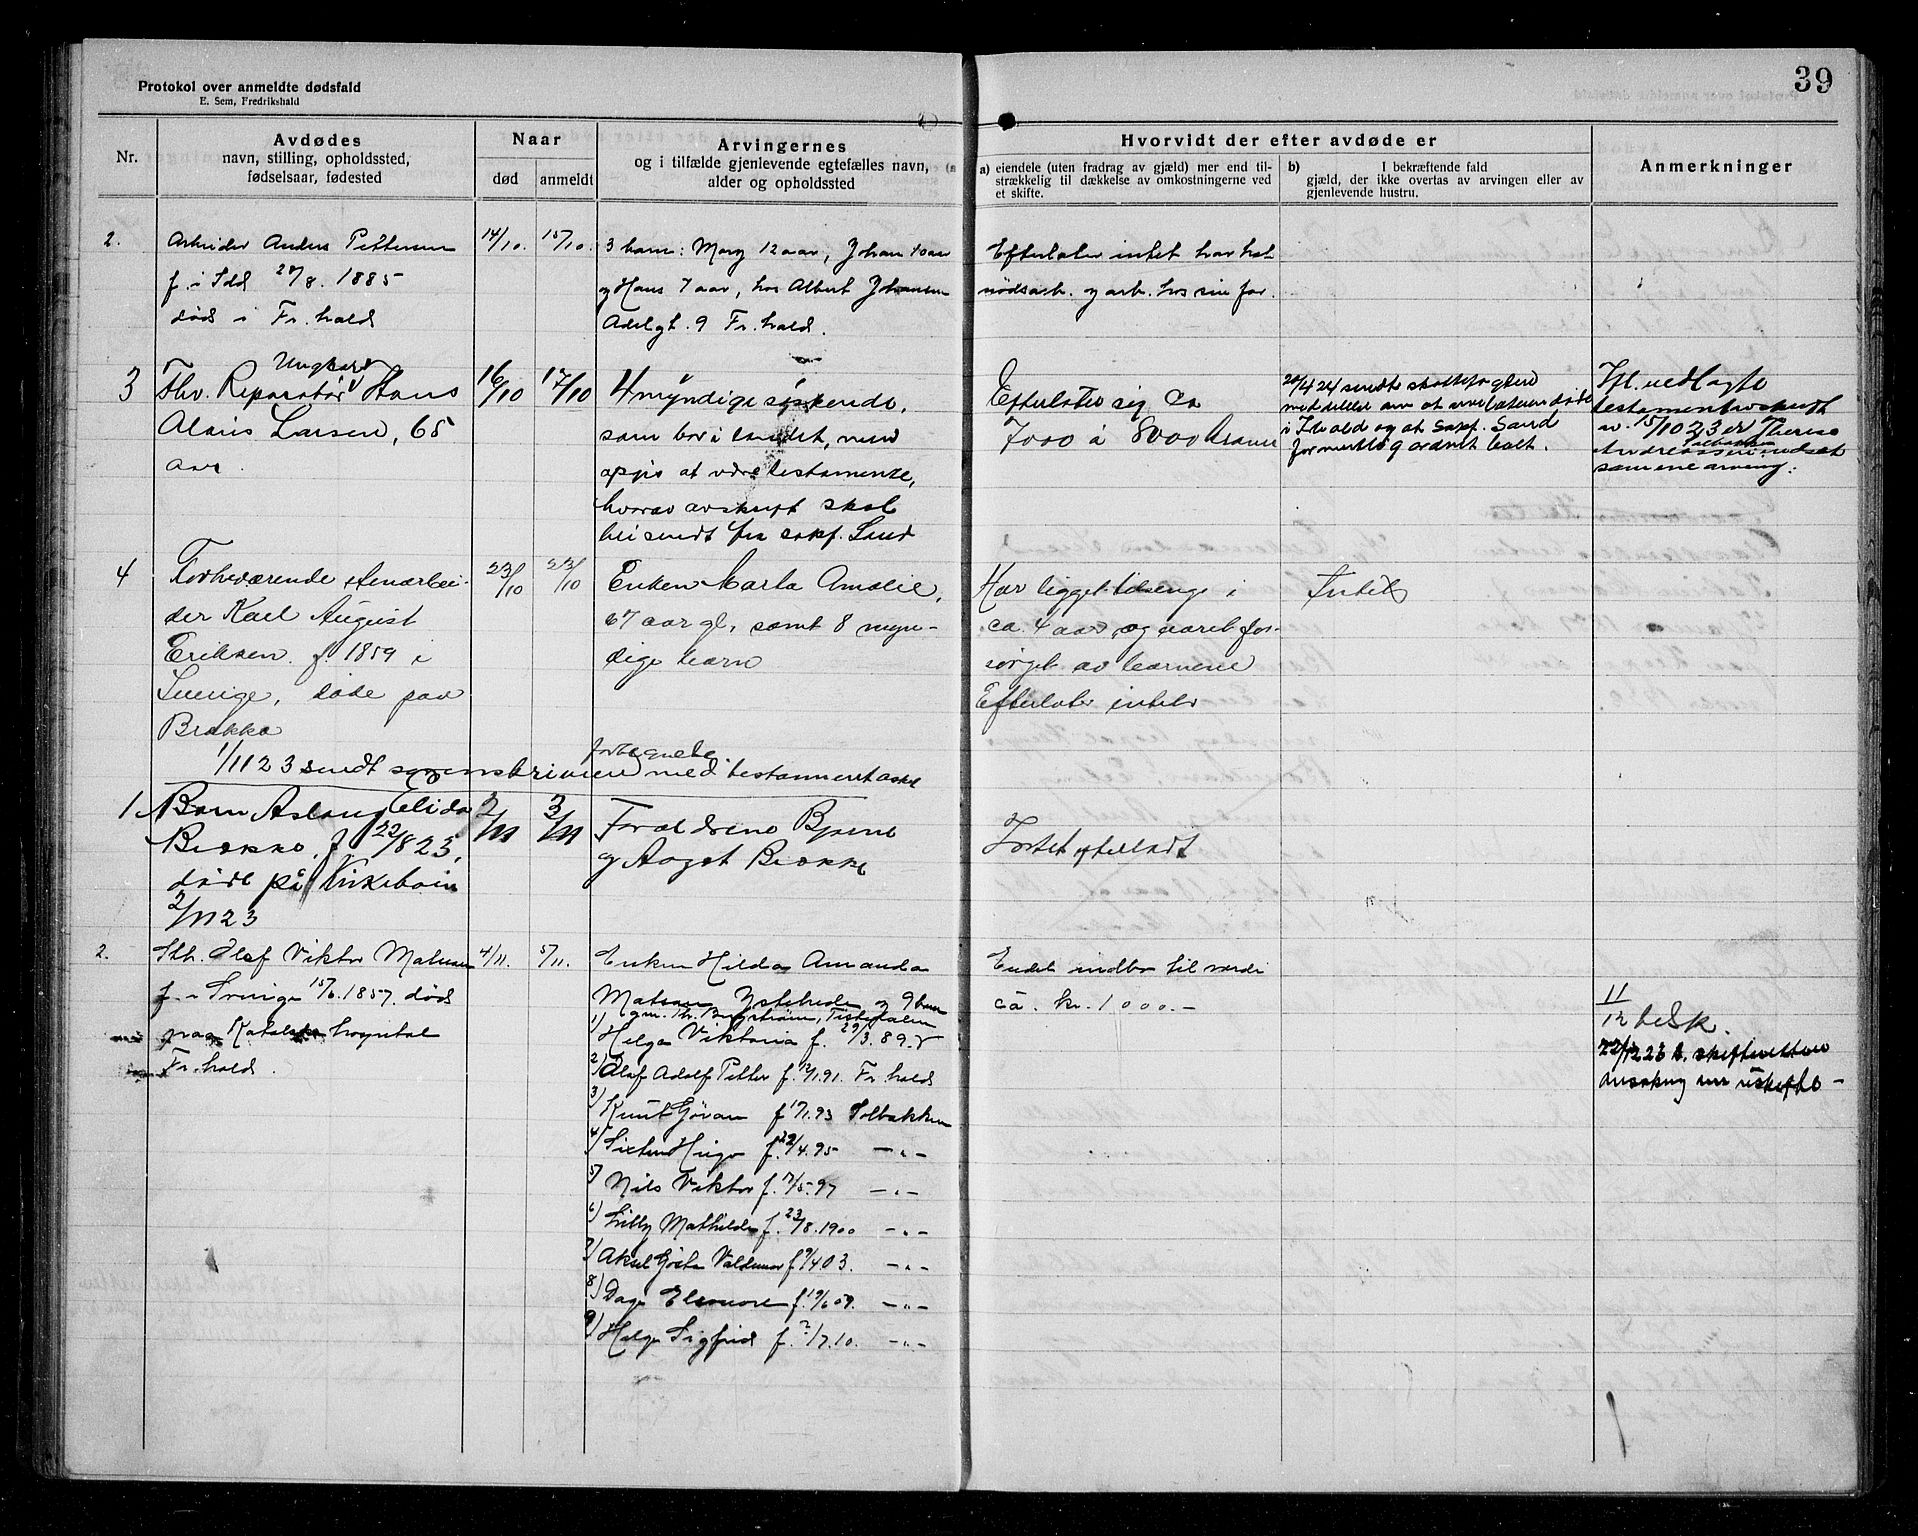 39
Protokol over anmeldte dødsfald
E. Sem, Fredrikshald
Nr.
Avdødes
navn, stilling, opholdssted,
fødselsaar, fødested
Naar
død
anmeldt
Arvingernes
og i tilfælde gjenlevende egtefælles navn,
alder og opholdssted
Hvorvidt der efter avdøde er
a) eiendele (uten fradrag av gjæld) mer end til-
strækkelig til dækkelse av omkostningerne ved
et skifte.
b) I bekræftende fald
gjæld, der ikke overtas av arvingen eller av
gjenlevende hustru.
Anmerkninger
2.
Arbeider Anders Pettersen
f. i Idd 27/8. 1885
død i Fr.hald
14/10.
15/10.
3 barn: Mary 12 aar, Johan 10 aar
og Hans 7 aar, hos Albert Johansen
Adelgt. 9 Fr.hald.
Efterlater intet har hat
nødsarb. og arb. hos sin far.
3
Ungkar
Fhv. Reparatør Hans
Alaris Larsen, 65
aar.
16/10
17/10
4 myndige søskende,
som bor i landet, men
opgis at være testamente,
hvorav avskrift skal
bli sendt fra sakf. Sand
Efterlater sig ca
7000 à 8000 kroner
24 sendt skattefogden
meddelelse om at arvelateren døde
i Fr.hald og at sakf. Sand
formentlig ordnet boet.
Ifl. vedlagte
testamentavskrift
av 15/10 23 er Therese
Andreassen Solbakken indsat
som enearving.
4
Forhværende stenarbei-
der Karl August
Eriksen f. 1859 i
Sverige, døde paa
Brække
23/10
23/10
Enken Marta Amalie,
67 aar gl, samt 8 myn-
dige barn
Har ligget tilsengs i
ca. 4 aar og været for-
sørget av barnene
Efterlater intet
Intet
1/11 23 sendt sorenskriveren fortegnelse med testamentavskr
1.
Barn Aslaug Elida
Brække, f 22/8 23,
døde på Kirkebøien
2/11 23
2/11
3/11
Forældrene Bjerne
og Aagot Brække
Intet efterladt
2.
Sth. Olaf Viktor Matsson
f. i Sverige 15/6. 1857. død
paa Katolske hospital
Fr.hald.
4/11.
5/11.
Enken Hilda Amanda
Matsson Ystehede og 9 barn
gm. Th. Bergstrøm, Tistedalen
1) Helga Viktoria f. 29/3. 89.
2) Olaf Adolf Petter f. 12/1. 91. Fr.hald
3) Knut Göran f 17/1. 93 Solbakken
4) Sixten Hugo f. 22/4. 95 — „ —
5) Nils Viktor f. 7/5. 97 — „ —
6) Lilly Mathilde f. 23/8. 1900 — „ —
7) Aksel Gösta Valdemar f 9/4 03. — „ —
8) Dage Eleonore f. 19/6 07. — „ —
9) Helge Sigfrid f. 2/7. 10. — „ —
Endel indbo til værdi
ca. kr. 1000.-
11/12 besk.
22/12 23 t. skifteretten
ansøkng om uskifte —